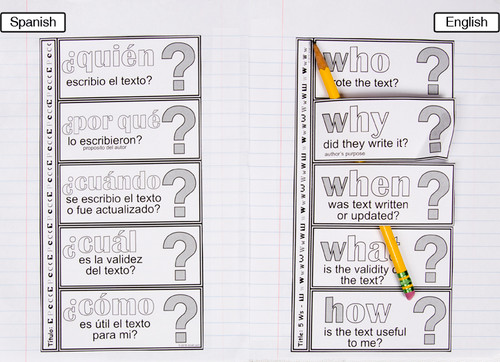 Spanish
¿quién
escribio el texto?
?
¿por qué
lo escribieron?
proposito del autor
?
¿cuándo
se escribio el texto
o fue actualizado?
?
¿cuál
es la validez
del texto?
?
¿cómo
es útil el texto
para mi?
?
Título:
English
who
rote the text?
?
why
did they write it?
author's purpose
?
when
was text written
or updated?
?
what
is the validity of
the text?
?
how
is the text useful
to me?
?
Title: 5 Ws -